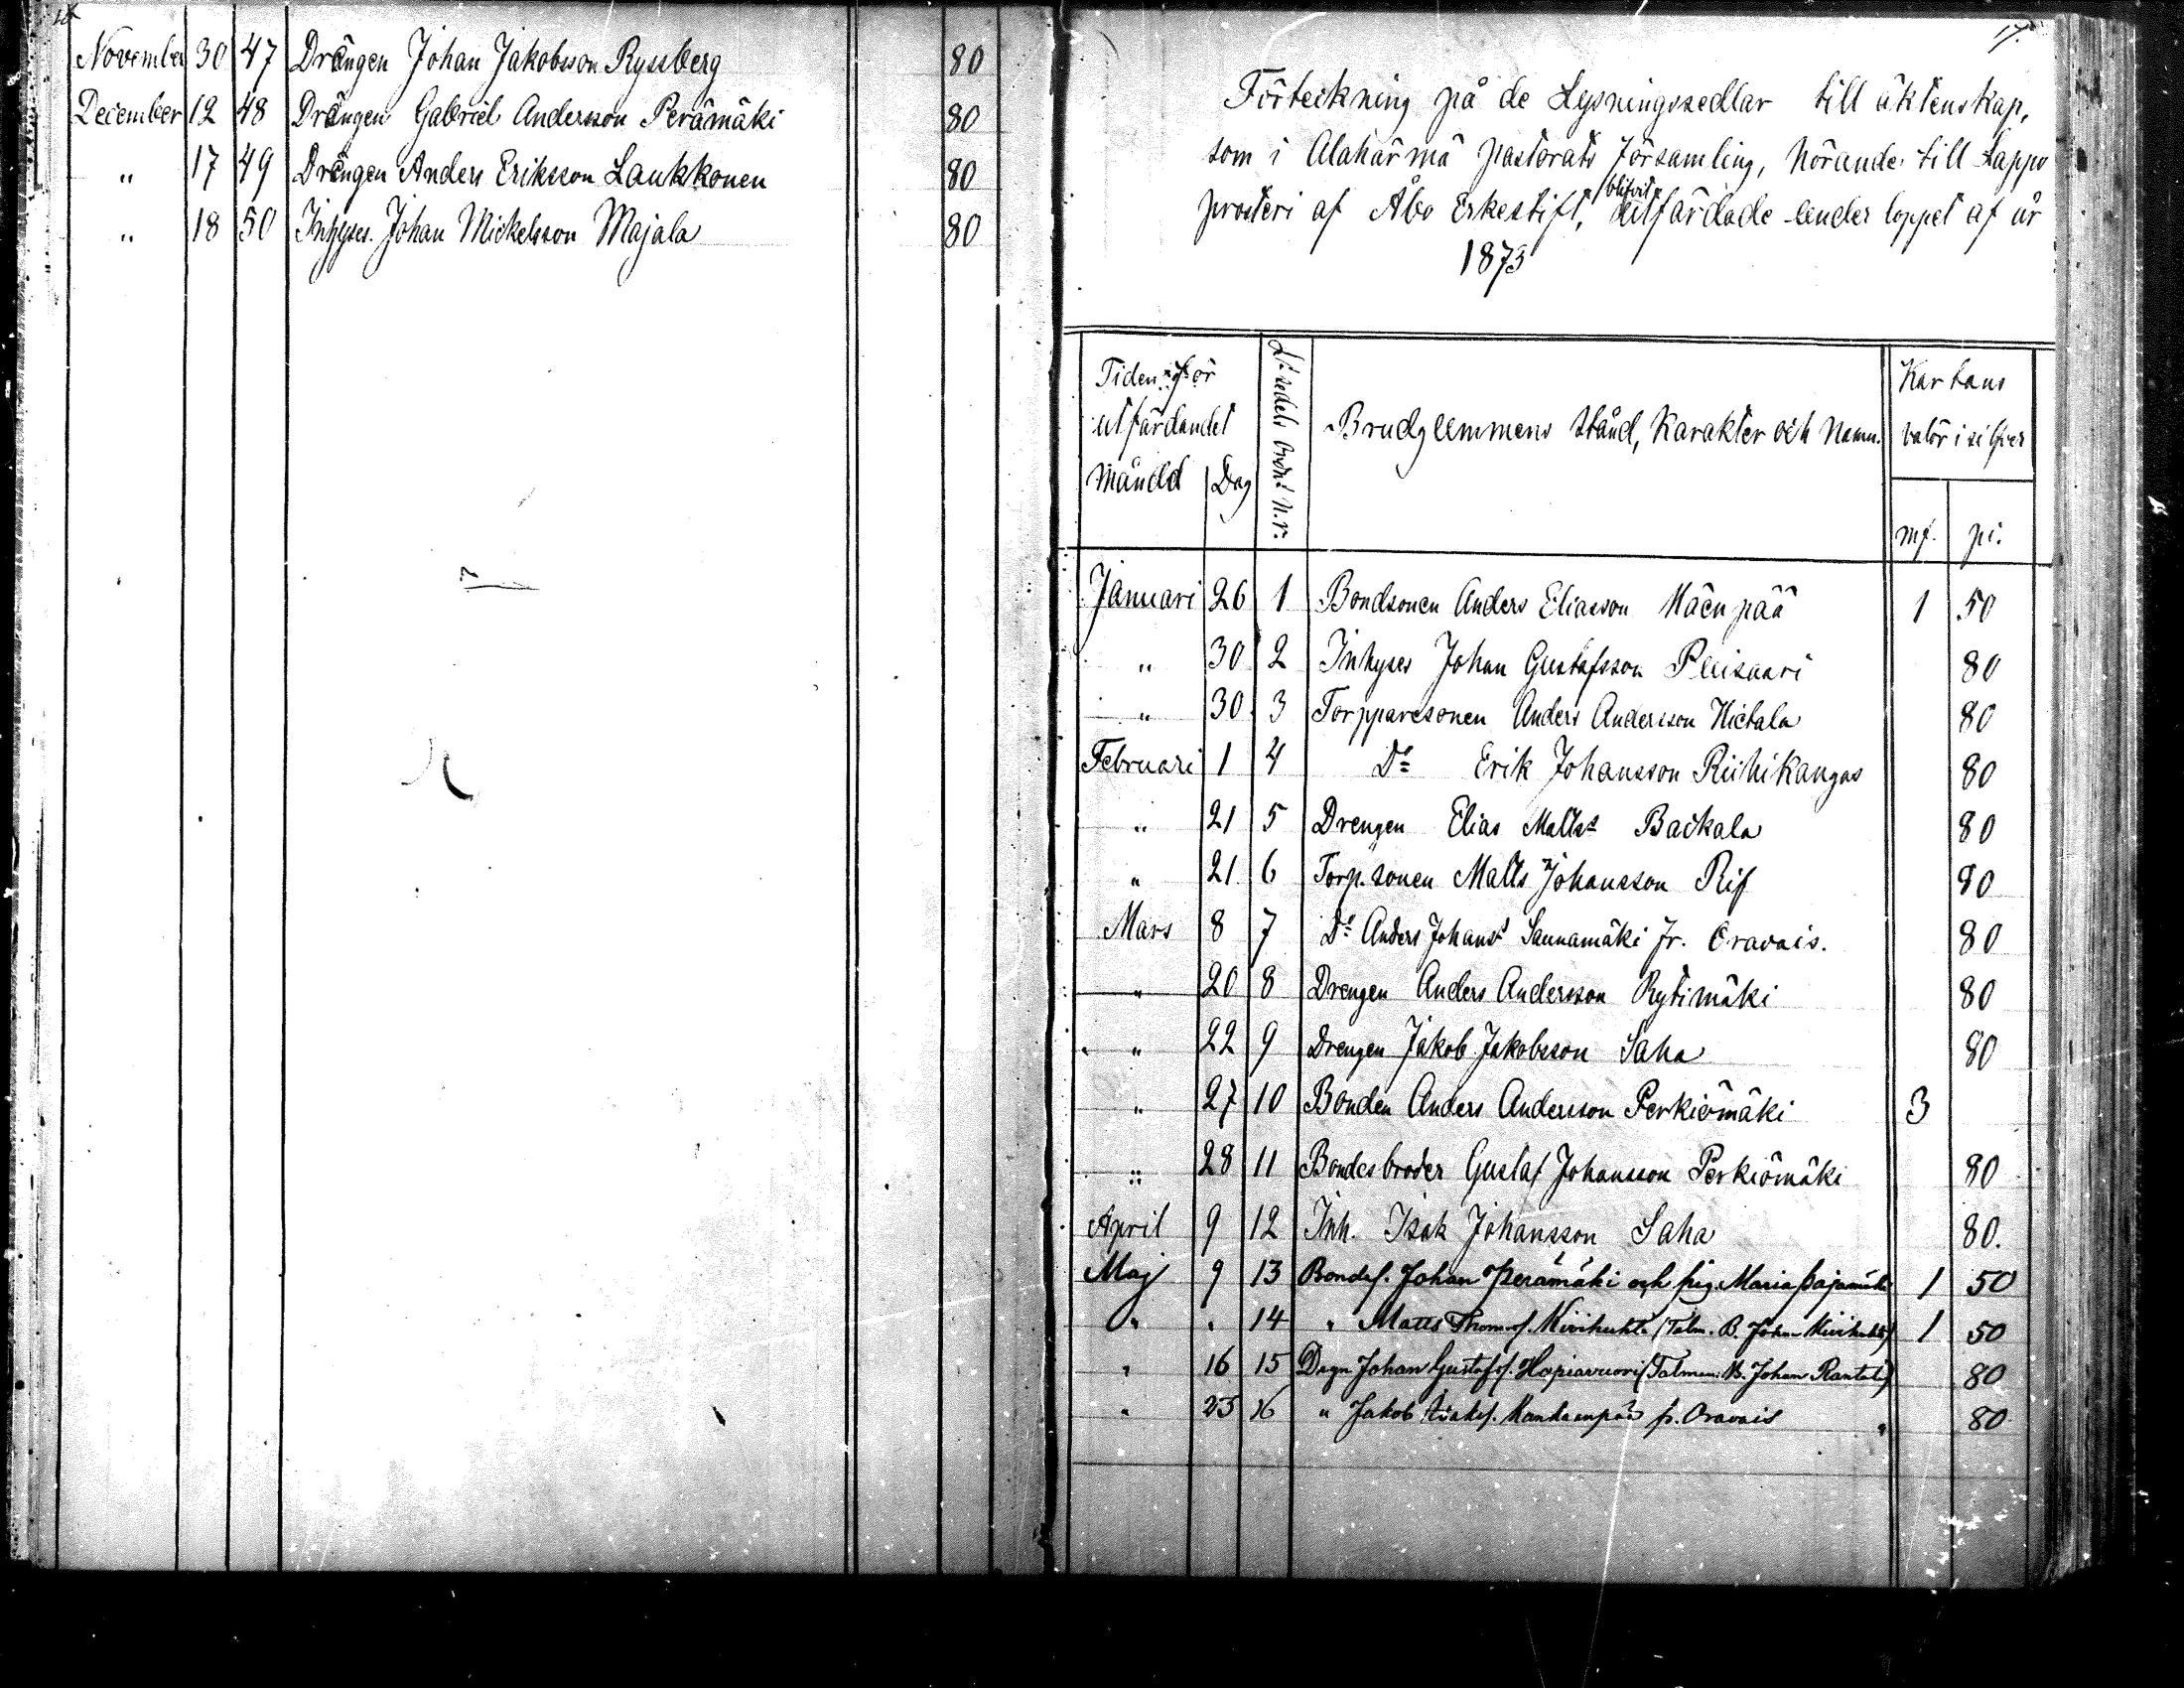 November 30 47 Drängen Johan Jakobsson Ryssberg 80
December 12 48 Drängen Gabriel Andersson Perämäki 80
" 17 49 Drängen Anders Eriksson Laukkonen 80
" 18 50 Inhyses. Johan Mickelsson Majala 80
17.
Förteckning på de Lysningssedlar till äktenskap,
som i Alahärmä pastorats församling, hörande till Lappo
blifvit
prosteri af Åbo Erkestift, utfärdade under loppet af år
1873
Tiden för
utfärdandet
Månad Dag
L:s sedels Ordn: N.r.
Brudgummens stånd, karakter och namn.
Kartans
valör i silfver
mf. pi.
Januari 26 1 Bondsonen Anders Eliasson Mäenpää 1 50
" 30 2 Inhyses Johan Gustafsson Pluisaari 80
" 30 3 Torpparesonen Anders Andersson Hietala 80
Februari 1 4 Do Erik Johansson Riihikangas 80
" 21 5 Drengen Elias Matts: Backala 80
" 21 6 Torp.sonen Matts Johansson Rif 80
Mars 8 7 Do Anders Johans: Saunamäki fr. Oravais. 80
" 20 8 Drengen Anders Andersson Rytimäki 80
" 22 9 Drengen Jakob Jakobsson Saha 80
" 27 10 Bonden Anders Andersson Perkiömäki 3
" 28 11 Bondesbroder Gustaf Johansson Perkiömäki 80
April 9 12 Inh. Isak Johansson Saha 80.
Maj 9 13 Bondes. Johan Perämäki och pig. Maria Pajamäki 1 50
" " 14 " Matts Thomss. Kivihuhta (Talm. B. Johan Kivihuhta) 1 50
" 16 15 Drgn Johan Gustafss. Hapiavuori (Talman: B. Johan Rantala) 80
" 23 16 " Jakob Isakss. Kankaanpää fr. Oravais 80